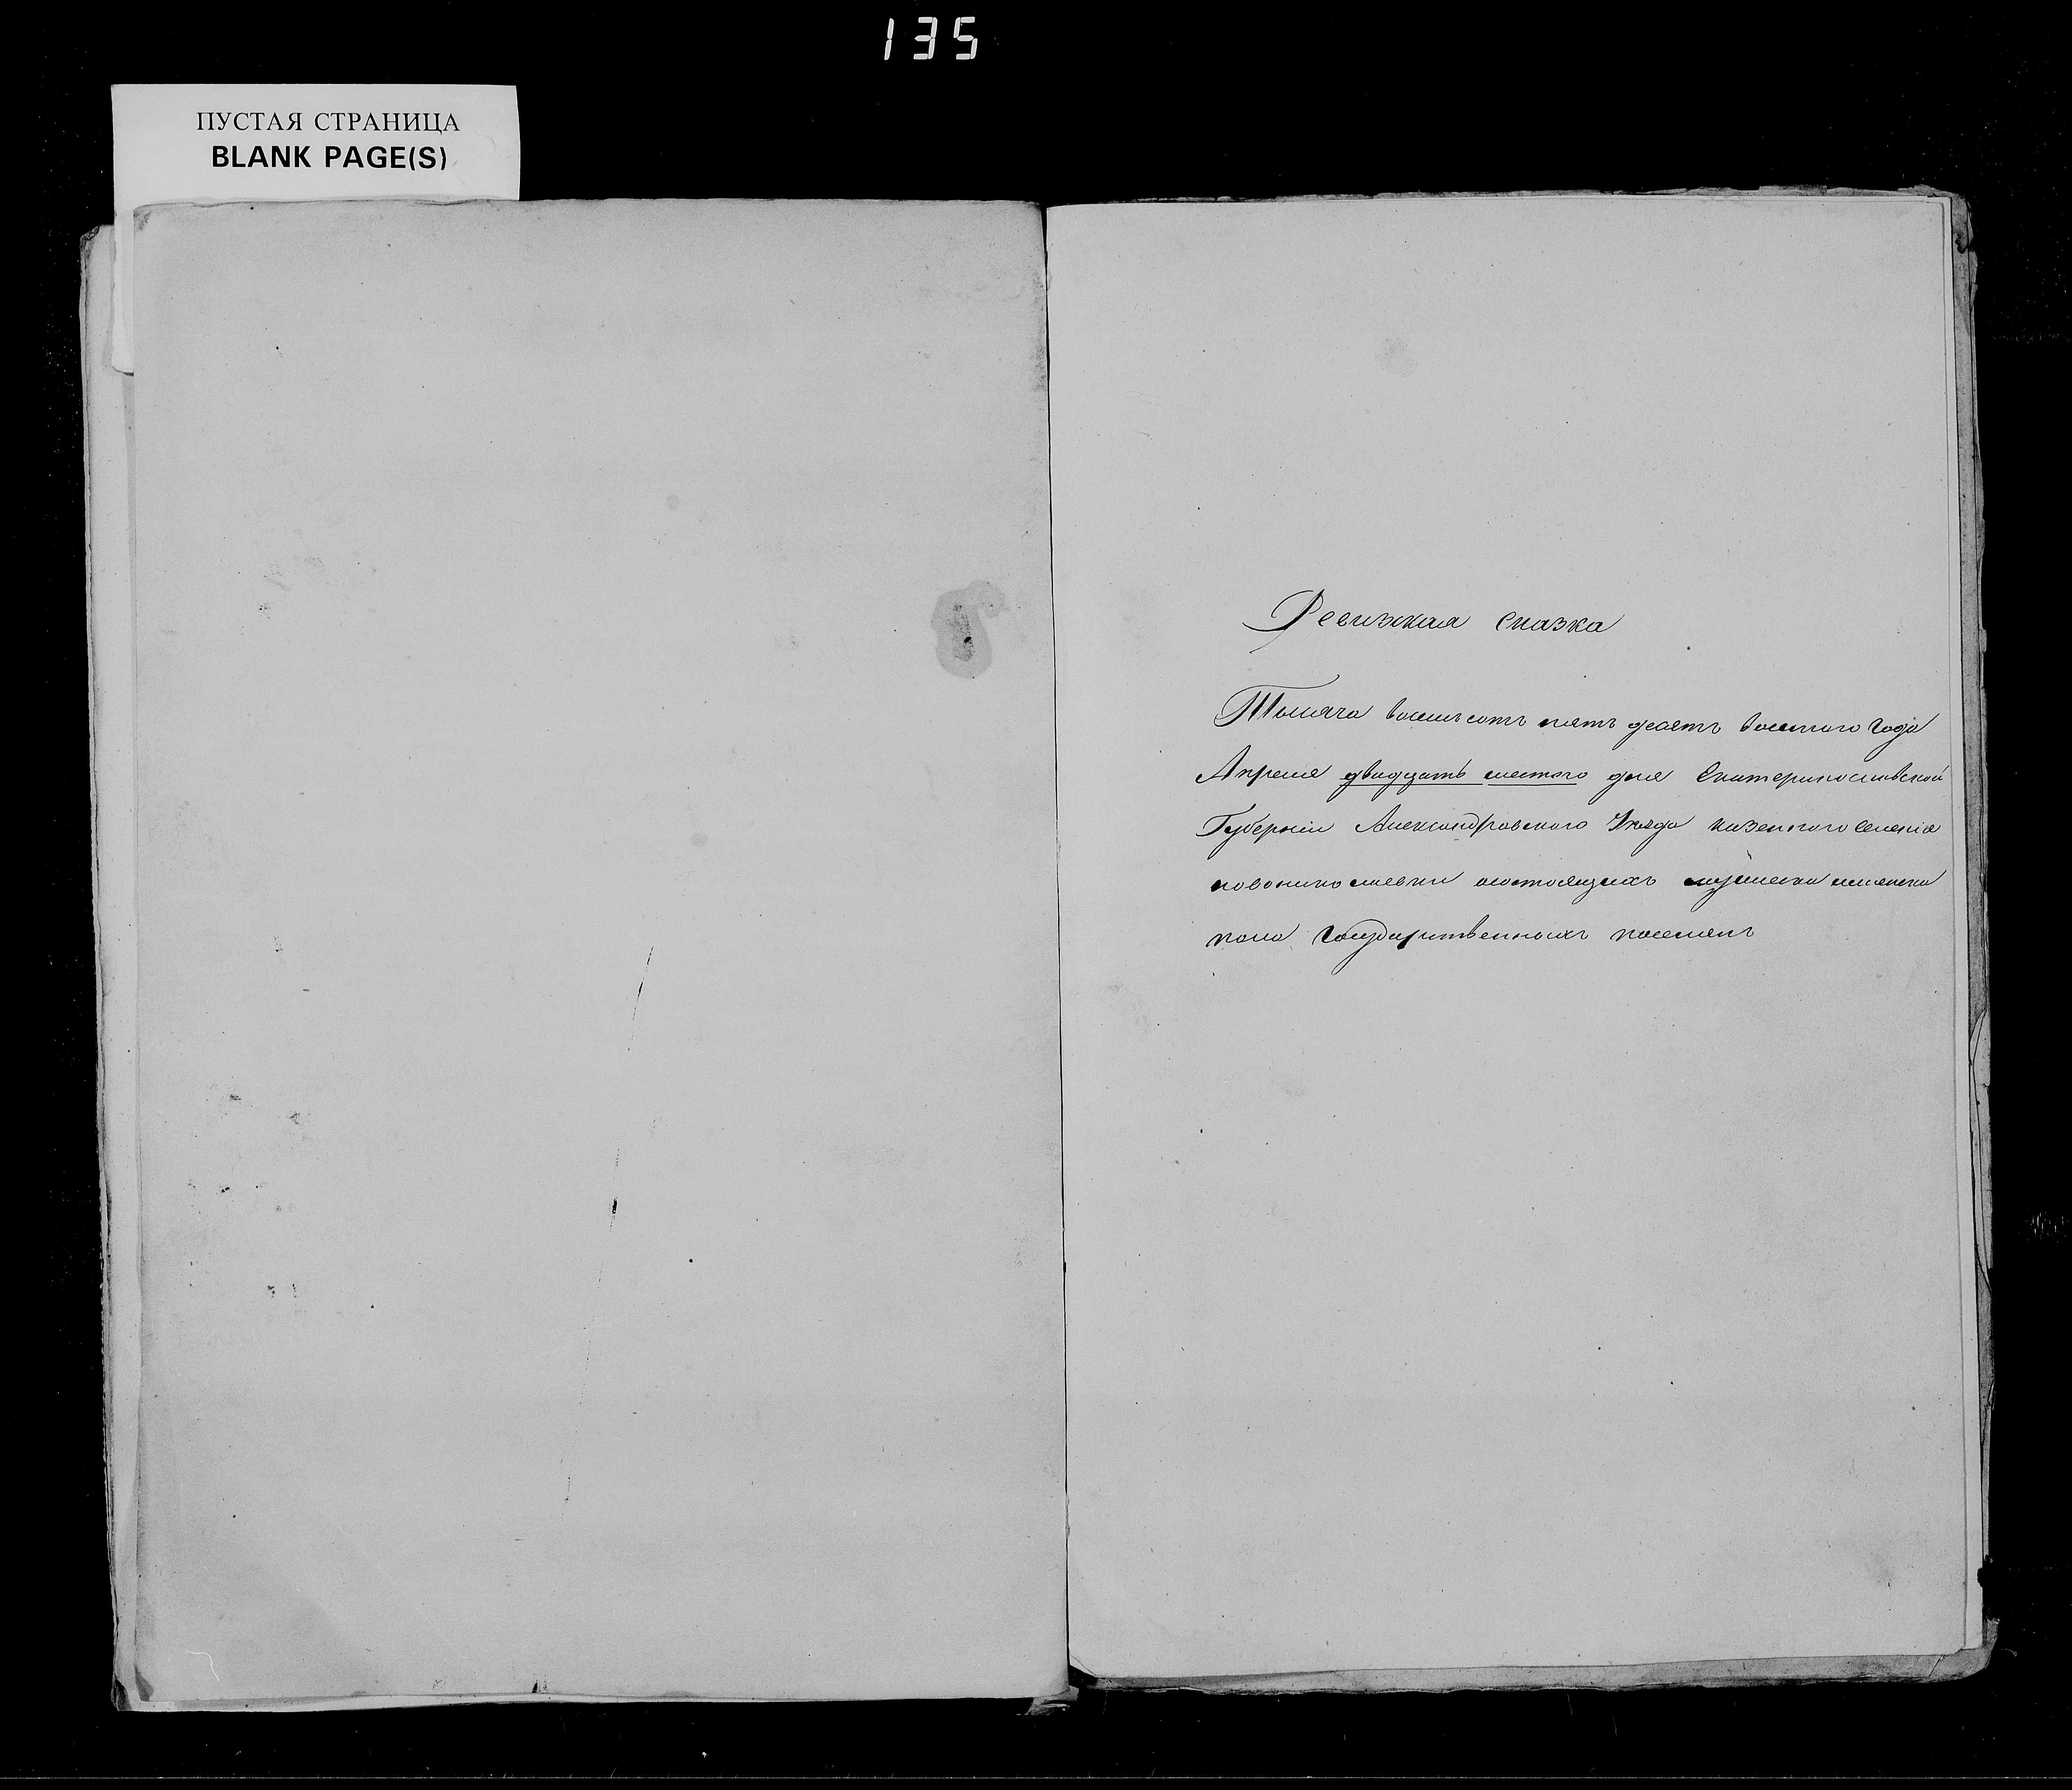 135
ПУСТАЯ СТРАНИЦА
BLANK PAGE(S)
Ревизкая сказка
Тысяча восемьсотъ пять десятъ восмаго Года
Апреля двадцать шестого дня Екатеринославской
Губерніи Александровского Уѣзда казенного Селенія
новониколаевки состоящихъ мужеска иженска
пола Государственныхъ поселянъ